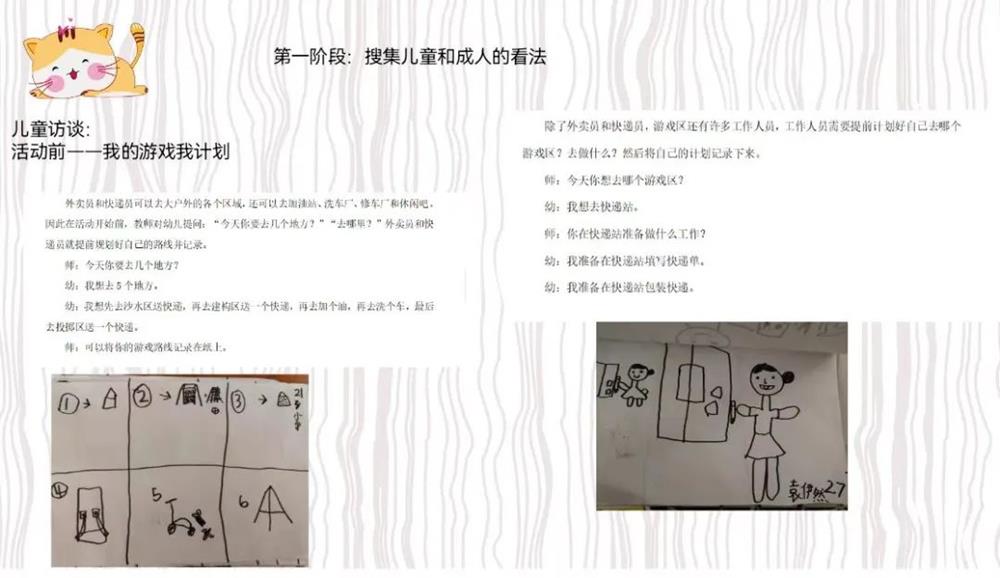 Hi
第一阶段：搜集儿童和成人的看法
儿童访谈：
活动前——我的游戏我计划
外卖员和快递员可以去大户外的各个区域，还可以去加油站、洗车厂、修车厂和休闲吧。
因此在活动开始前，教师对幼儿提问：“今天你要去几个地方？”“去哪里？”外卖员和快
递员就提前规划好自己的路线并记录。
师：今天你要去几个地方？
幼：我想去5个地方。
幼：我想先去沙水区送快递，再去建构区送一个快递，再去加个油，再去洗个车，最后
去投掷区送一个快递。
师：可以将你的游戏路线记录在纸上。
①→
②→
③→
21号
④
5
6
除了外卖员和快递员，游戏区还有许多工作人员，工作人员需要提前计划好自己去哪个
游戏区？去做什么？然后将自己的计划记录下来。
师：今天你想去哪个游戏区？
幼：我想去快递站。
师：你在快递站准备做什么工作？
幼：我准备在快递站填写快递单。
幼：我准备在快递站包装快递。
袁伊然27